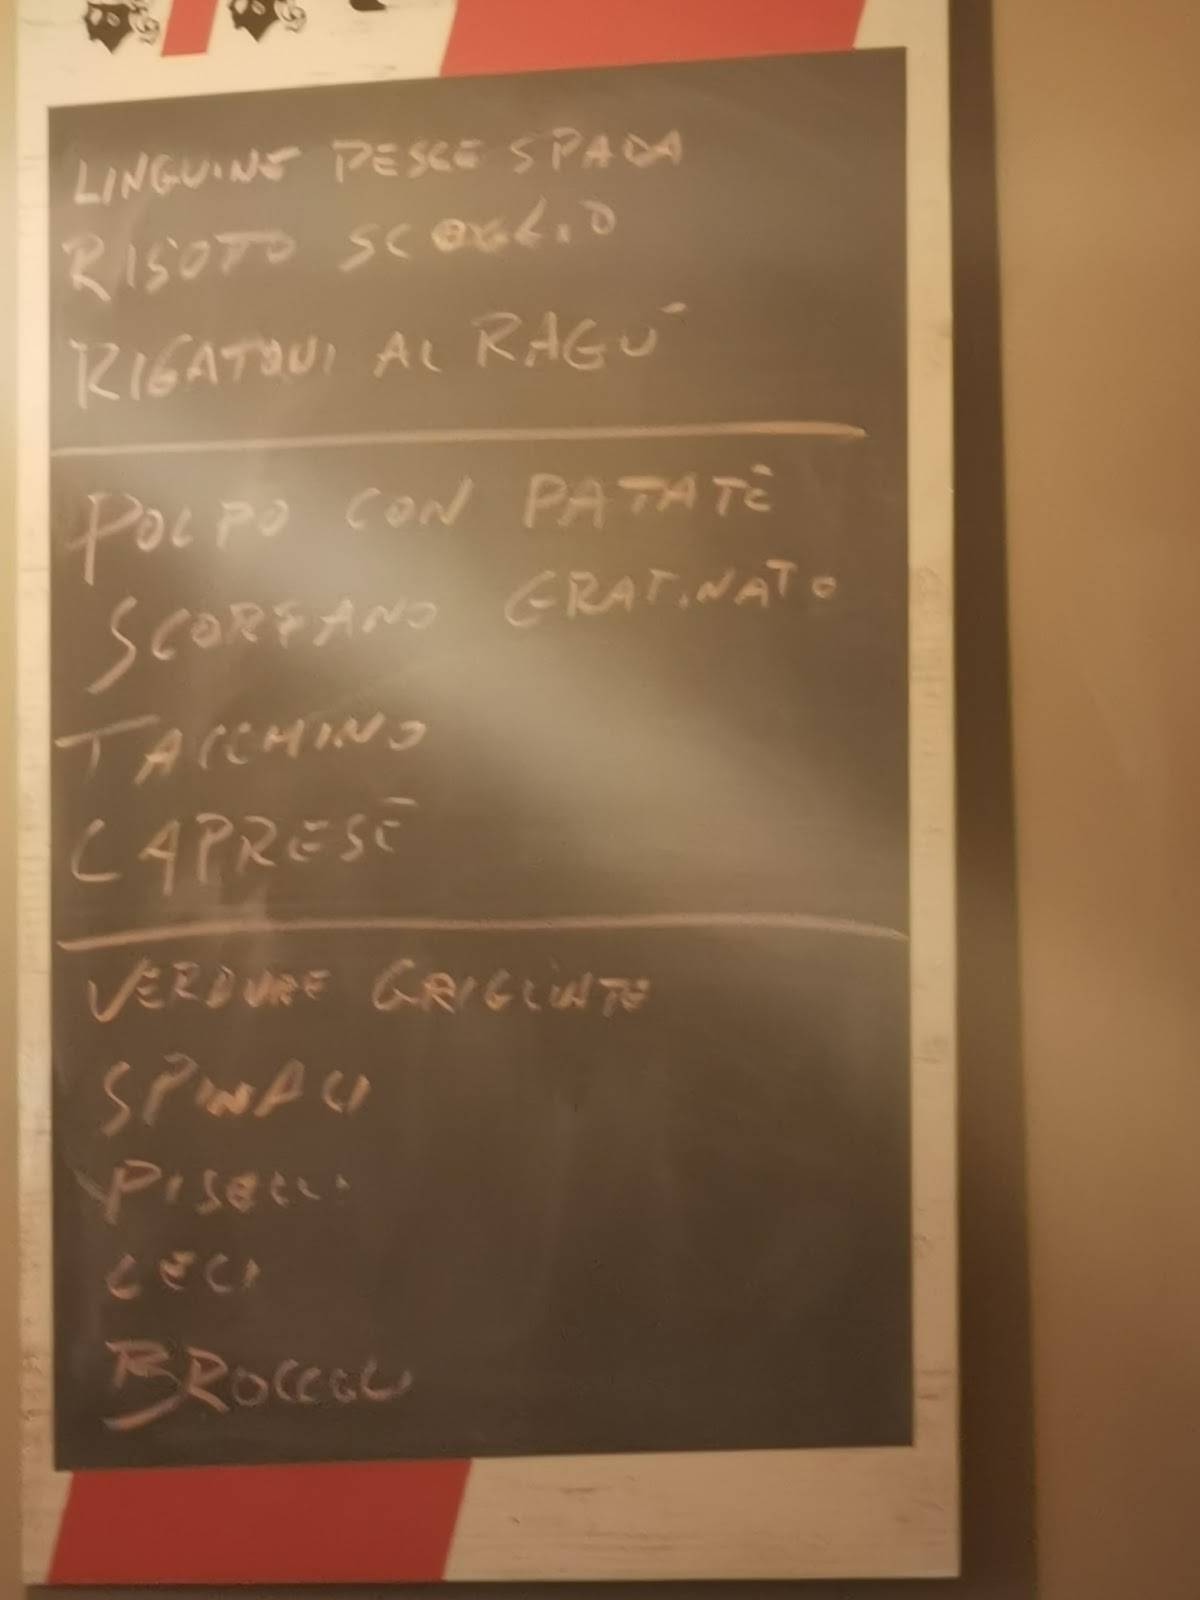 LINGUINE PESCE SPADA
RISOTO SCOGLIO
RIGATONI AL RAGU'
POLPO CON PATATE
SCORFANO GRATINATO
TACCHINO
CAPRESE
VERDURE GRIGLIATE
SPINACI
PISELLI
CECI
BROCCOLI